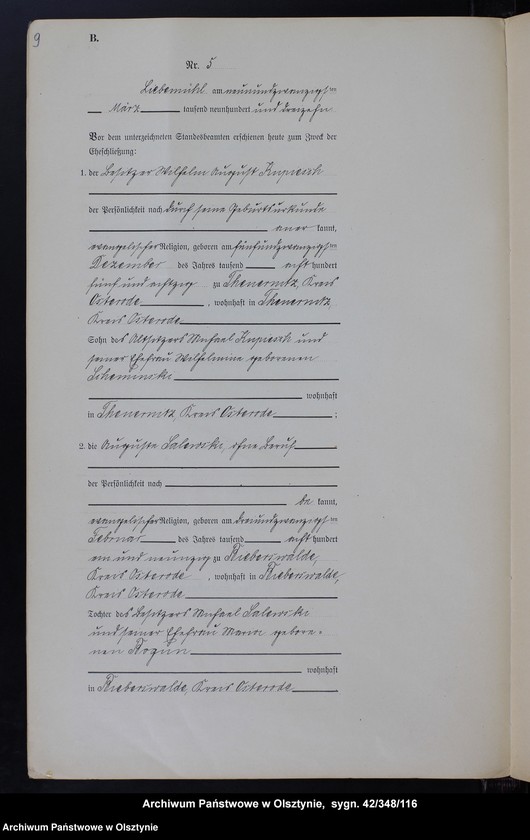 9
B.
Nr. 5
Liebemühl am neunundzwanzigsten
März tausend neunhundert und dreizehn
Vor dem unterzeichneten Standesbeamten erschienen heute zum Zweck der
Eheschließung:
1. der Besitzer Wilhelm August
der Persönlichkeit nach durch seine Geburtsurkunde
aner kannt,
evangelischer Religion, geboren am fünfundzwanzigsten
Dezember des Jahres tausend acht hundert
fünf und achtzig zu Kreis
Osterode, wohnhaft in
Kreis Osterode
Sohn des Altsitzers Michael und
seiner Ehefrau Wilhelmine geborenen
wohnhaft
in Kreis Osterode;
2. die Auguste Salewski, ohne Beruf
der Persönlichkeit nach
be kannt,
evangelischer Religion, geboren am dreiundzwanzigsten
Februar des Jahres tausend acht hundert
ein und neunzig zu Bieberswalde,
Kreis Osterode, wohnhaft in Bieberswalde,
Kreis Osterode
Tochter des Besitzers Michael Salewski
und seiner Ehefrau gebore-
nen
wohnhaft
in Bieberswalde, Kreis Osterode
Archiwum Państwowe w Olsztynie, sygn. 42/348/116
Archiwum Państwowe w Olsztynie